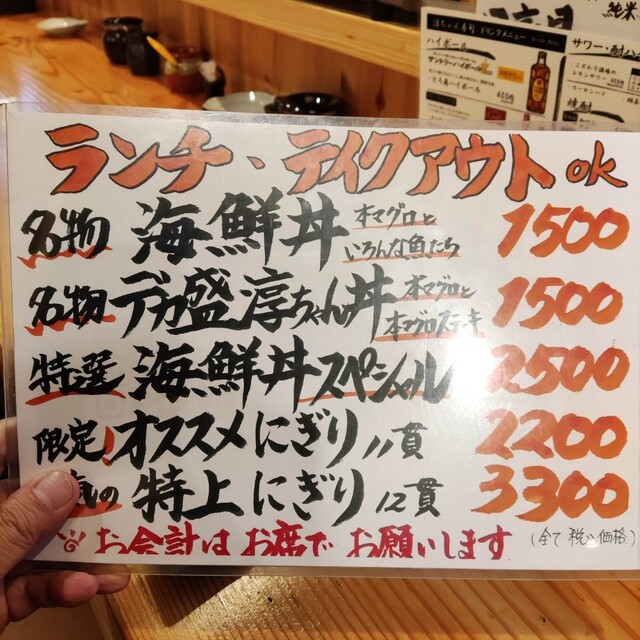 ランチ、テイクアウト ok
名物 海鮮丼 本マグロと いろんな魚たち 1500
名物 デカ盛 淳ちゃん丼 本マグロと 本マグロステーキ 1500
特選 海鮮丼スペシャル 2500
限定! オススメにぎり 11貫 2200
の 特上にぎり 12貫 3300
お会計はお席でお願いします (全て税込価格)
純米
ドリンクメニュー
ハイボール
サワー・酎